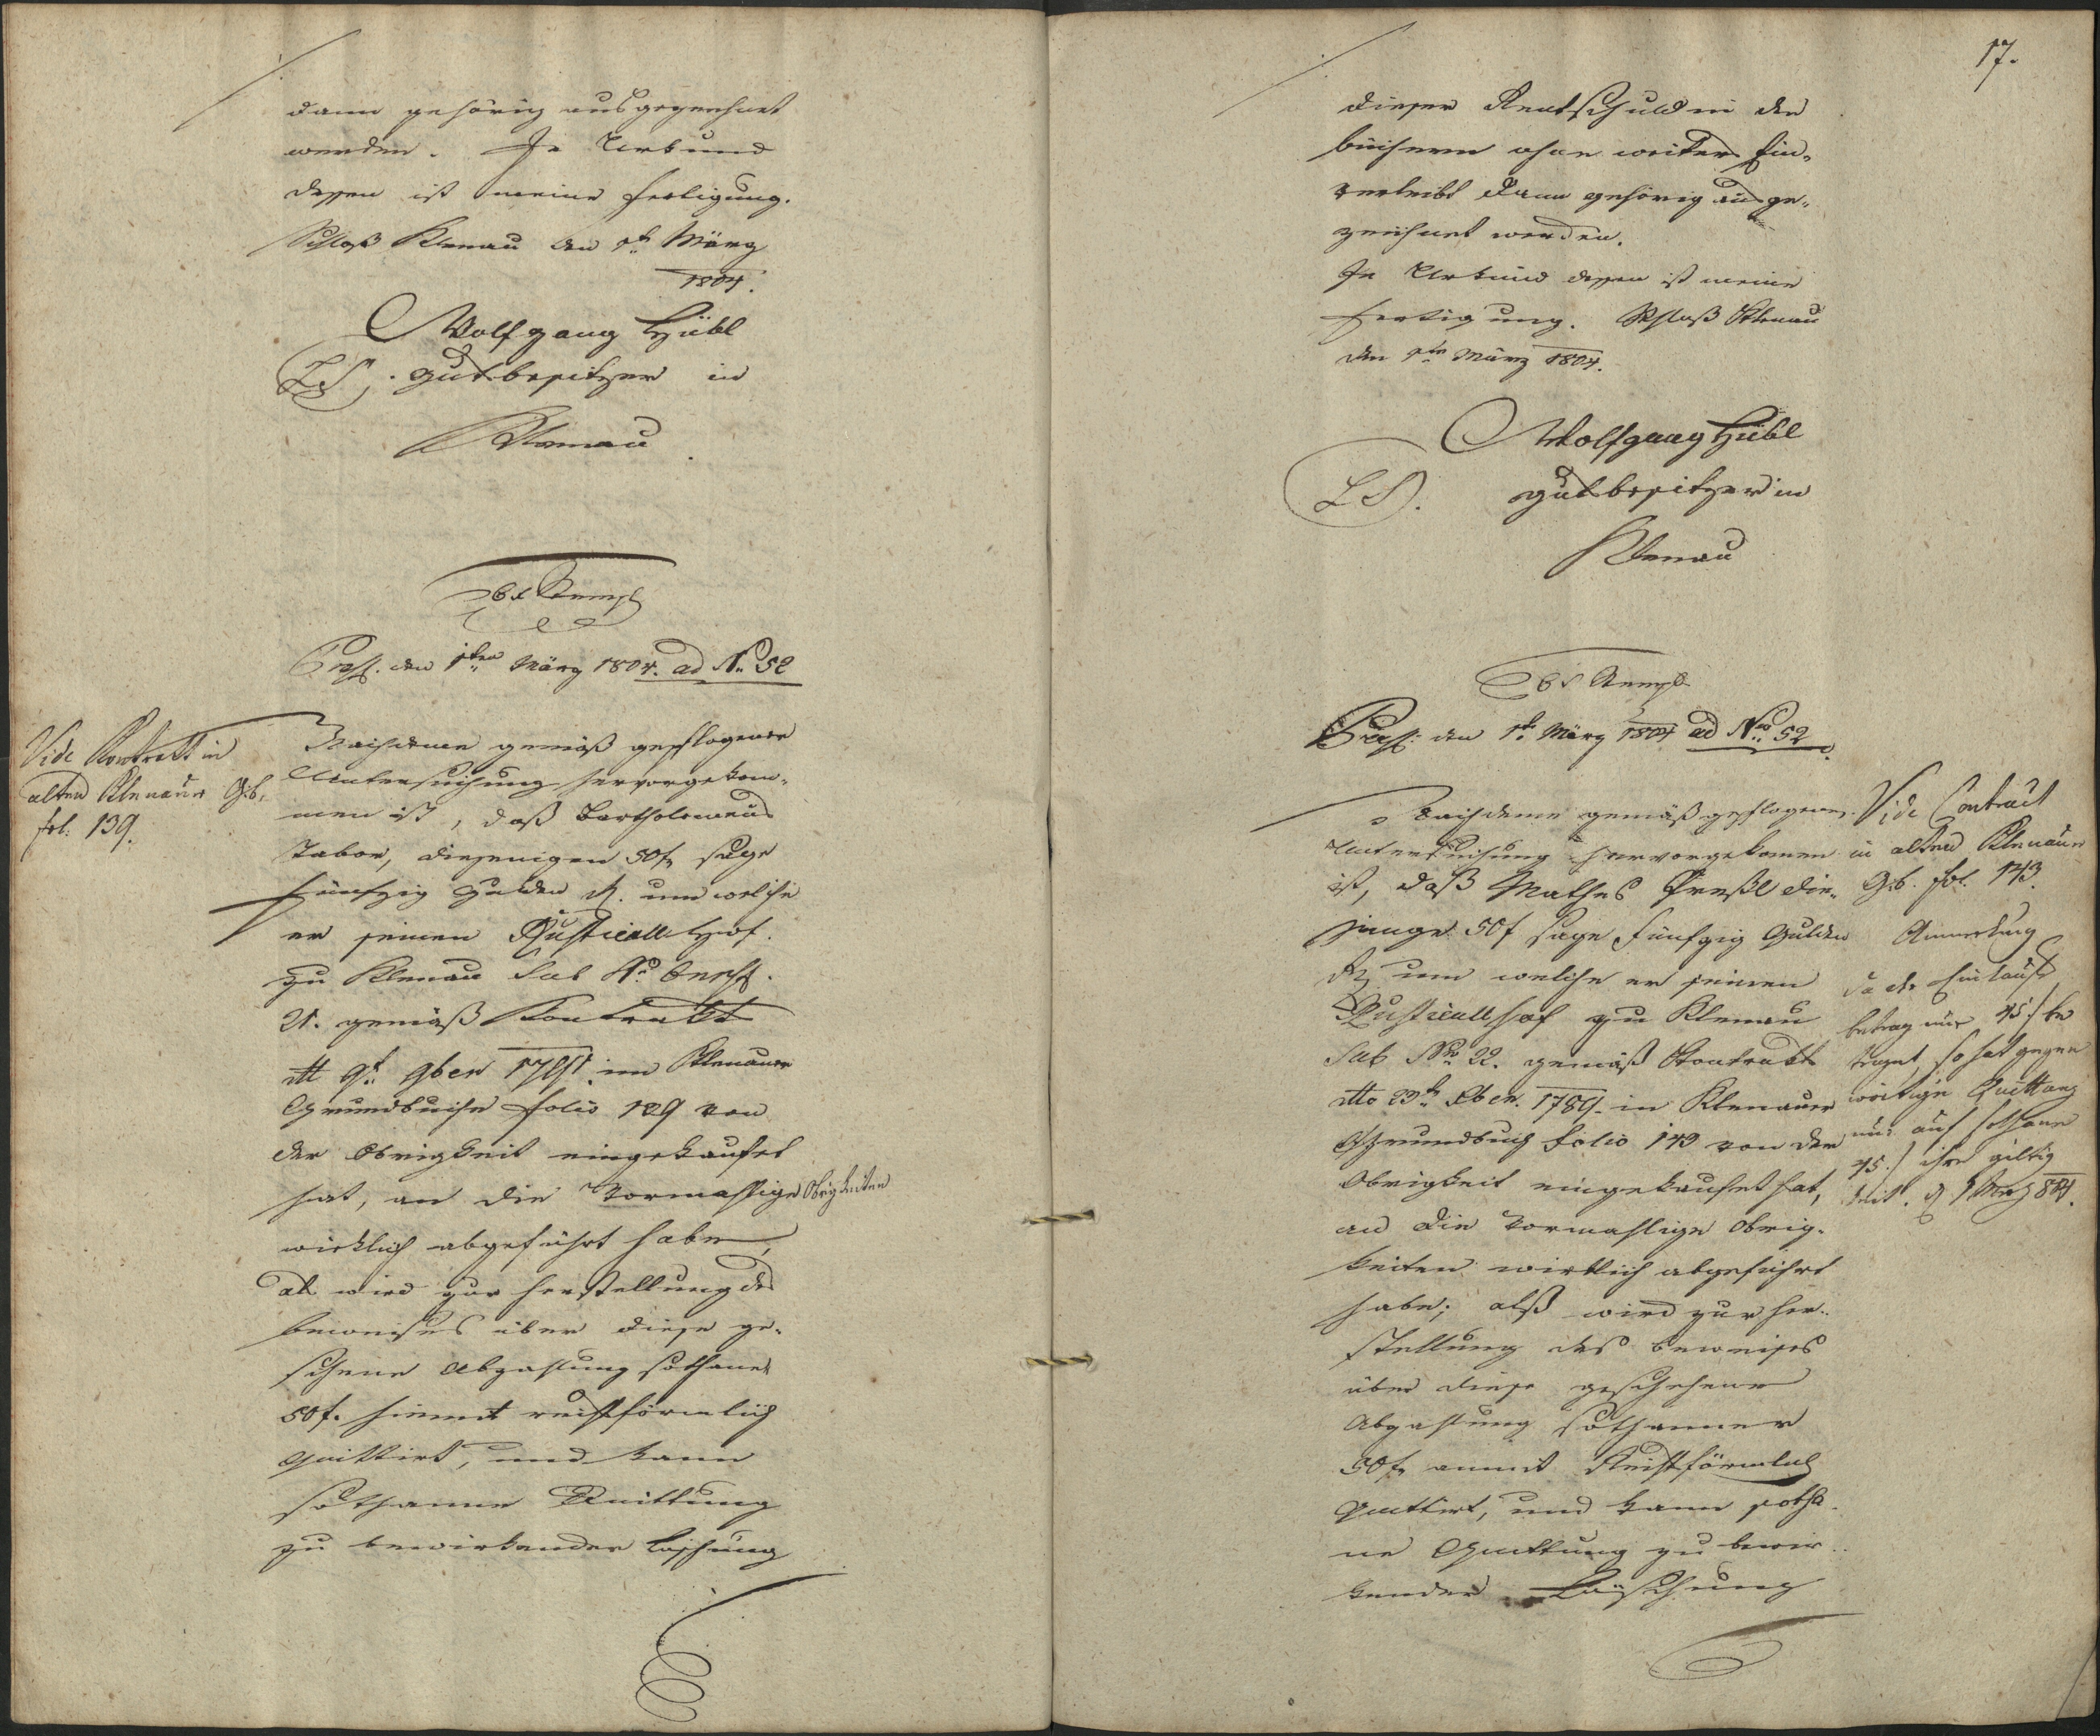 dann gehörig ausgezeichnet
werden. In Urkund
dessen ist meine Fertigung.
Schloß Klenau den 1t. März
1804.
Wolfgang Hübl
LS. Gutsbesitzer in
Klenau
Præs. den 1ten März 1804. ad N. 52
Vide Kontrakt in
alten Klenauer Gb.
fol. 139.
Nachdeme gemäß gepflogener
Untersuchung hervorgekom-
men ist, daß Bartholomeus
Tabor, diejenigen 50f sage
fünfzig Gulden R. um welche
er seinen Rusticall Hof
zu Klenau Sub N.
21. gemäß Kontrakt
9t. 9ber im Klenauer
Grundbuche folio 139 von
der Obrigkeit eingekaufet
hat, an die Vormahlige Obrigkeiten
wirklich abgeführt habe,
als wird zur Herstellung des
beweises über diese ge-
schene Abzahlung sothaner
50f. hiemit rechtsförmlich
quittirt, und kann
sothanne Quittung
zu bewirkender Löschung
17.
dieser Rentschuld in den
büchern ohne weiters Ein-
verleibt dann gehörig ausge-
zeichnet werden.
In Urkund dessen ist meine
Fertigung. Schloß Klenau
den 1ten März 1804.
Wolfgang Hübl
LS. Gutsbesitzer in
Klenau
Præs. den 1t. März 1804 ad Nro. 52
Nachdeme gemäß gepflogener
Untersuchung hervorgekomen
ist, daß Mathes Preßl die-
jenige 50f sage Fünfzig Gulden
R um welche er seinen
Rusticallhof zu Klenau
Sub Nro 22. gemäß Kontrakt
dtto 23t. 1789. in Klenauer
Grundbuch folio 143 von der
Obrigkeit eingekaufet hat,
an die Vormahlige Obrig-
keiten wirklich abgeführt
habe; alß wird zur her-
stellung des beweises
über diese geschehene
Abzahlung sothanner
50f anmit Rechtsförmlich
quittirt, und kann sotha-
ne Quittung zu bewir-
kender Löschung
Vide Contract
in alten Klenauer
Gb. fol. 143.
Anmerkung
da der Einkaufs
betrag nur 45f be
traget, so hat gegen
wärtige Quittung
nur auf sothane
45f ihre giltig
keit. d 1 Merz 804.